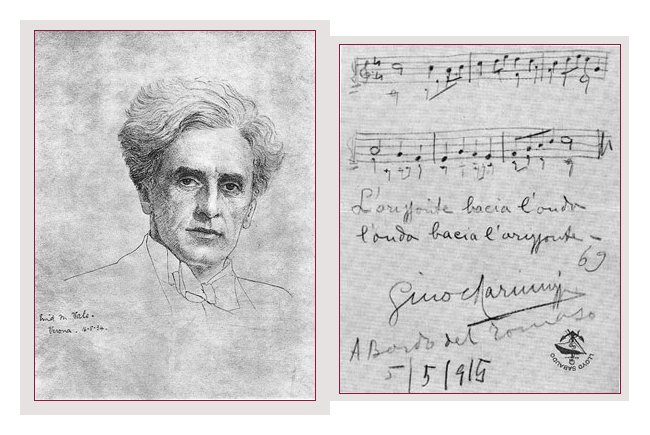 Enid M. Vale.
Verona. 4-5-34.
L'orizzonte bacia l'onda
l'onda bacia l'orizzonte -
69
Gino Marinuzzi
A Bordo del Tomaso
5/5/915
LLOYD SABAUDO